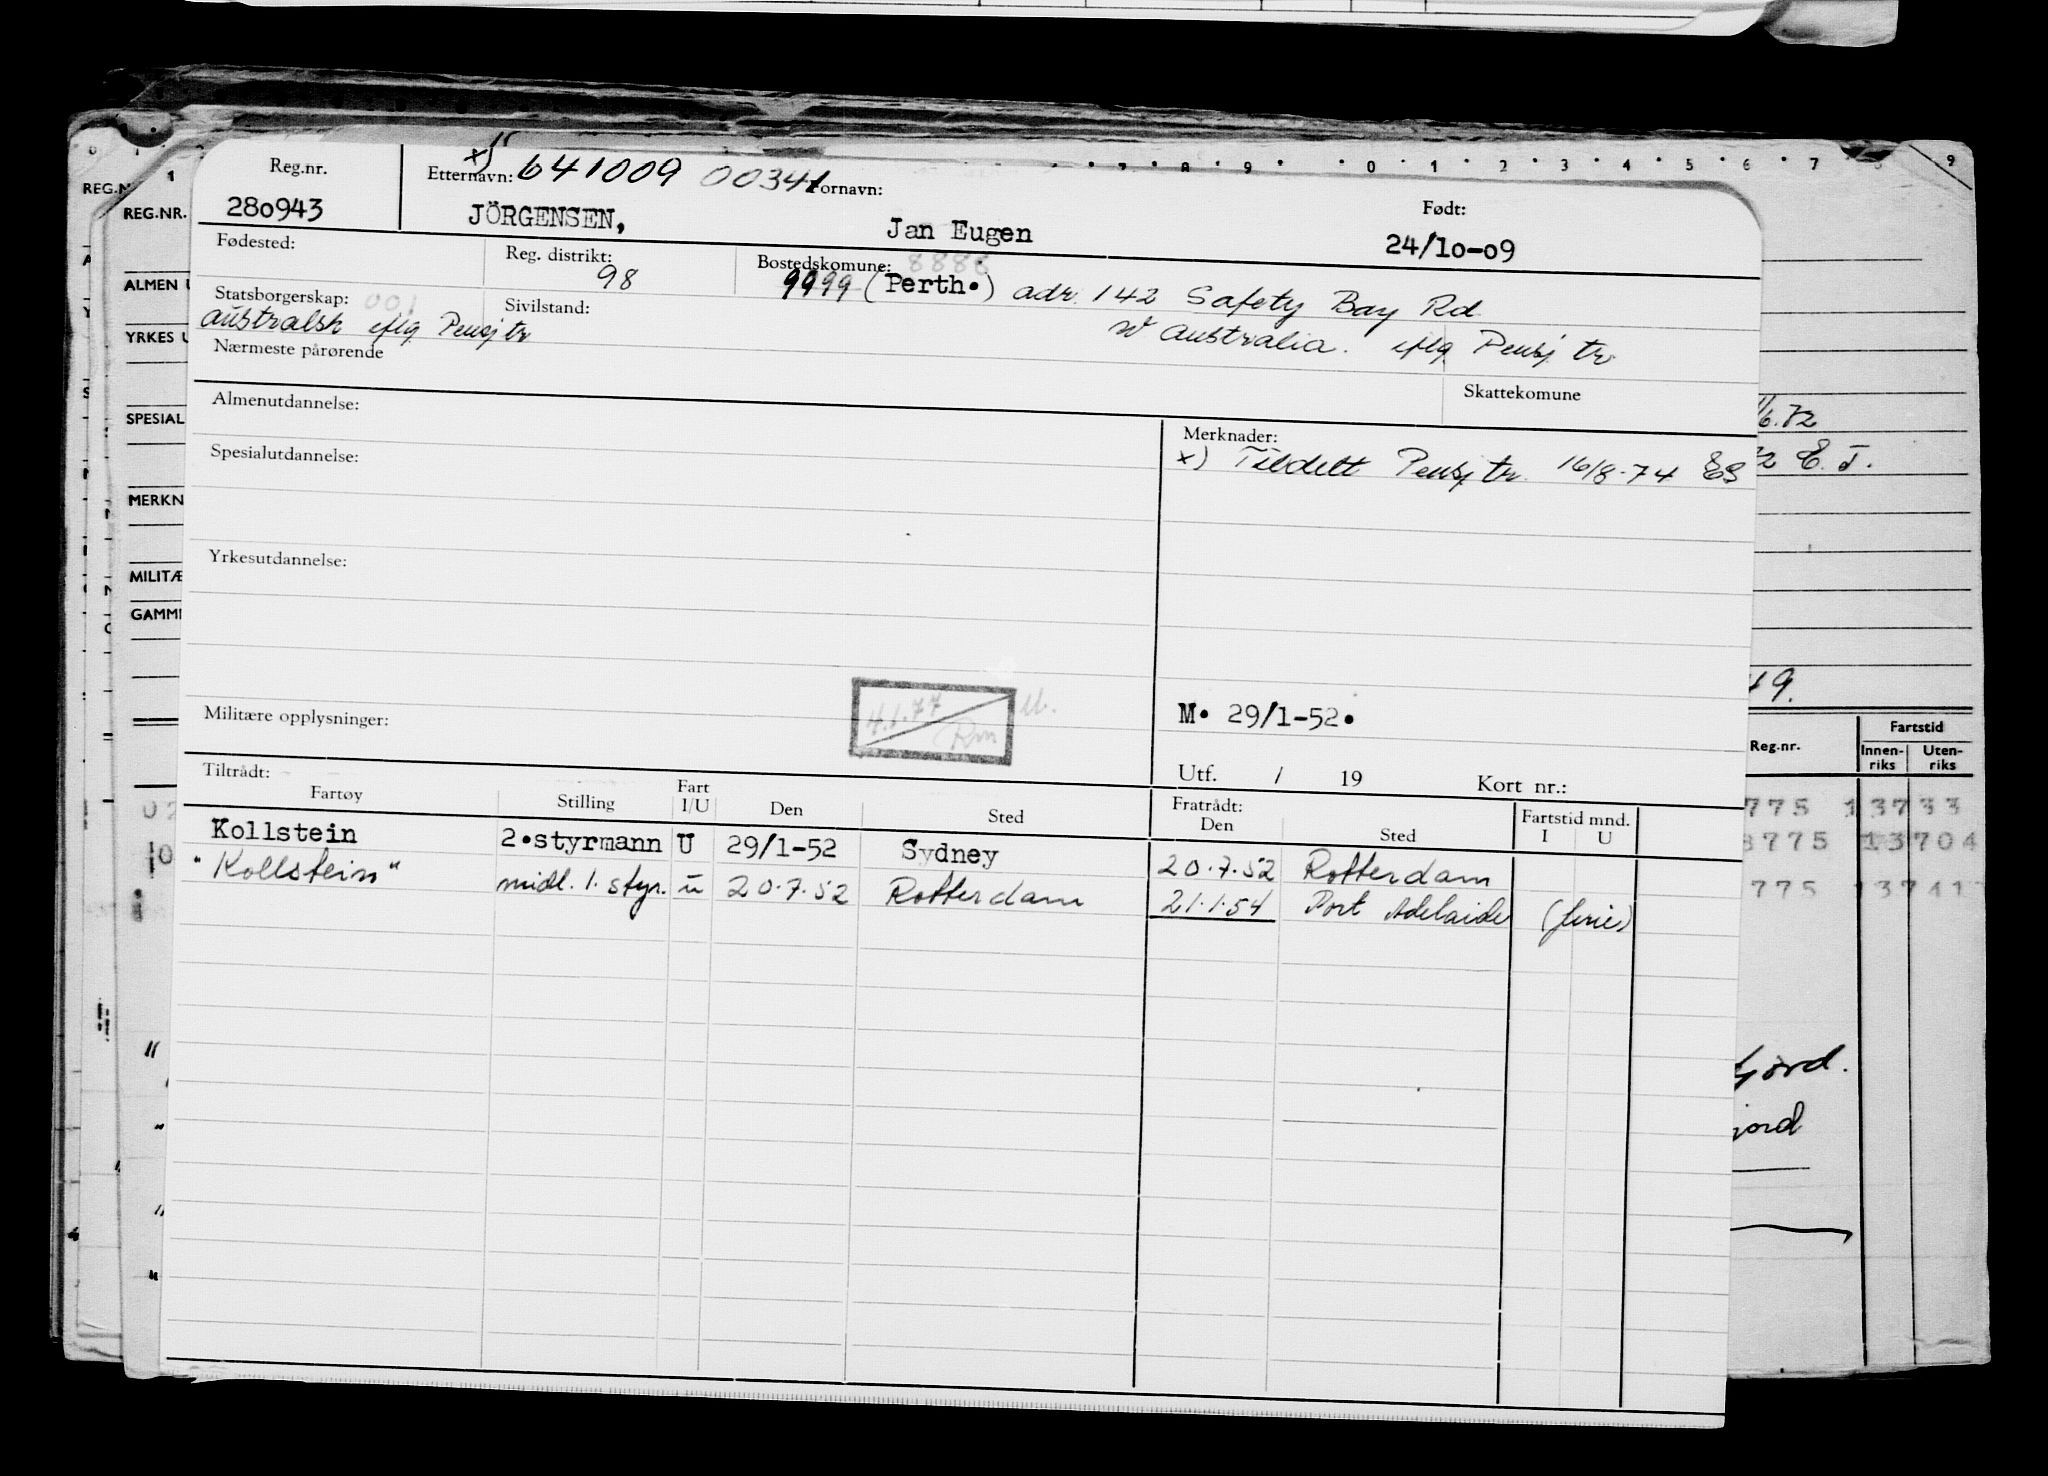 Reg.nr.
x)
Etternavn: 641009 00341 Fornavn:
Født:
280943
JÖRGENSEN,
Jan Eugen
24/10-09
Fødested:
Reg. distrikt:
98
Bostedskomune: 8888
9999 (Perth.) adr. 142 Safety Bay Rd
W Australia. iflg Pensj tr
Statsborgerskap: 001
Sivilstand:
australsk iflg Pensj tr
Nærmeste pårørende
Skattekomune
Almenutdannelse:
Merknader:
x) Tildelt Pensj tr. 16/8-74 ES
Spesialutdannelse:
Yrkesutdannelse:
Militære opplysninger:
4.1.77
M. 29/1-52.
Utf. / 19 Kort nr.:
Tiltrådt:
Fratrådt:
Fartøy Stilling Fart I/U Den Sted Den Sted Fartstid mnd. I U
Kollstein 2.styrmann U 29/1-52 Sydney 20.7.52 Rotterdam
"Kollstein" midl. 1. styr. u 20.7.52 Rotterdam 21.1.54 Port Adelaide (ferie)
REG.NR.
ALMEN U
YRKES U
SPESIAL
MERKN
MILITÆ
GAMM
7 8 9 0 1 2 3 4 5 6 7 8 9
6.72
E. T.
49.
Reg.nr.
Fartstid
Innen-riks
Uten-riks
775 13733
8775 13704
775 13741
fjord.
jord